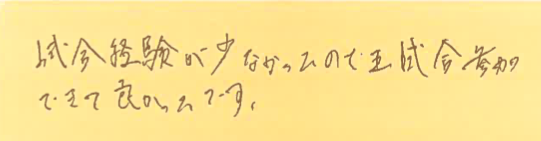 試合経験が少なかったので試合参加
できて良かったです。